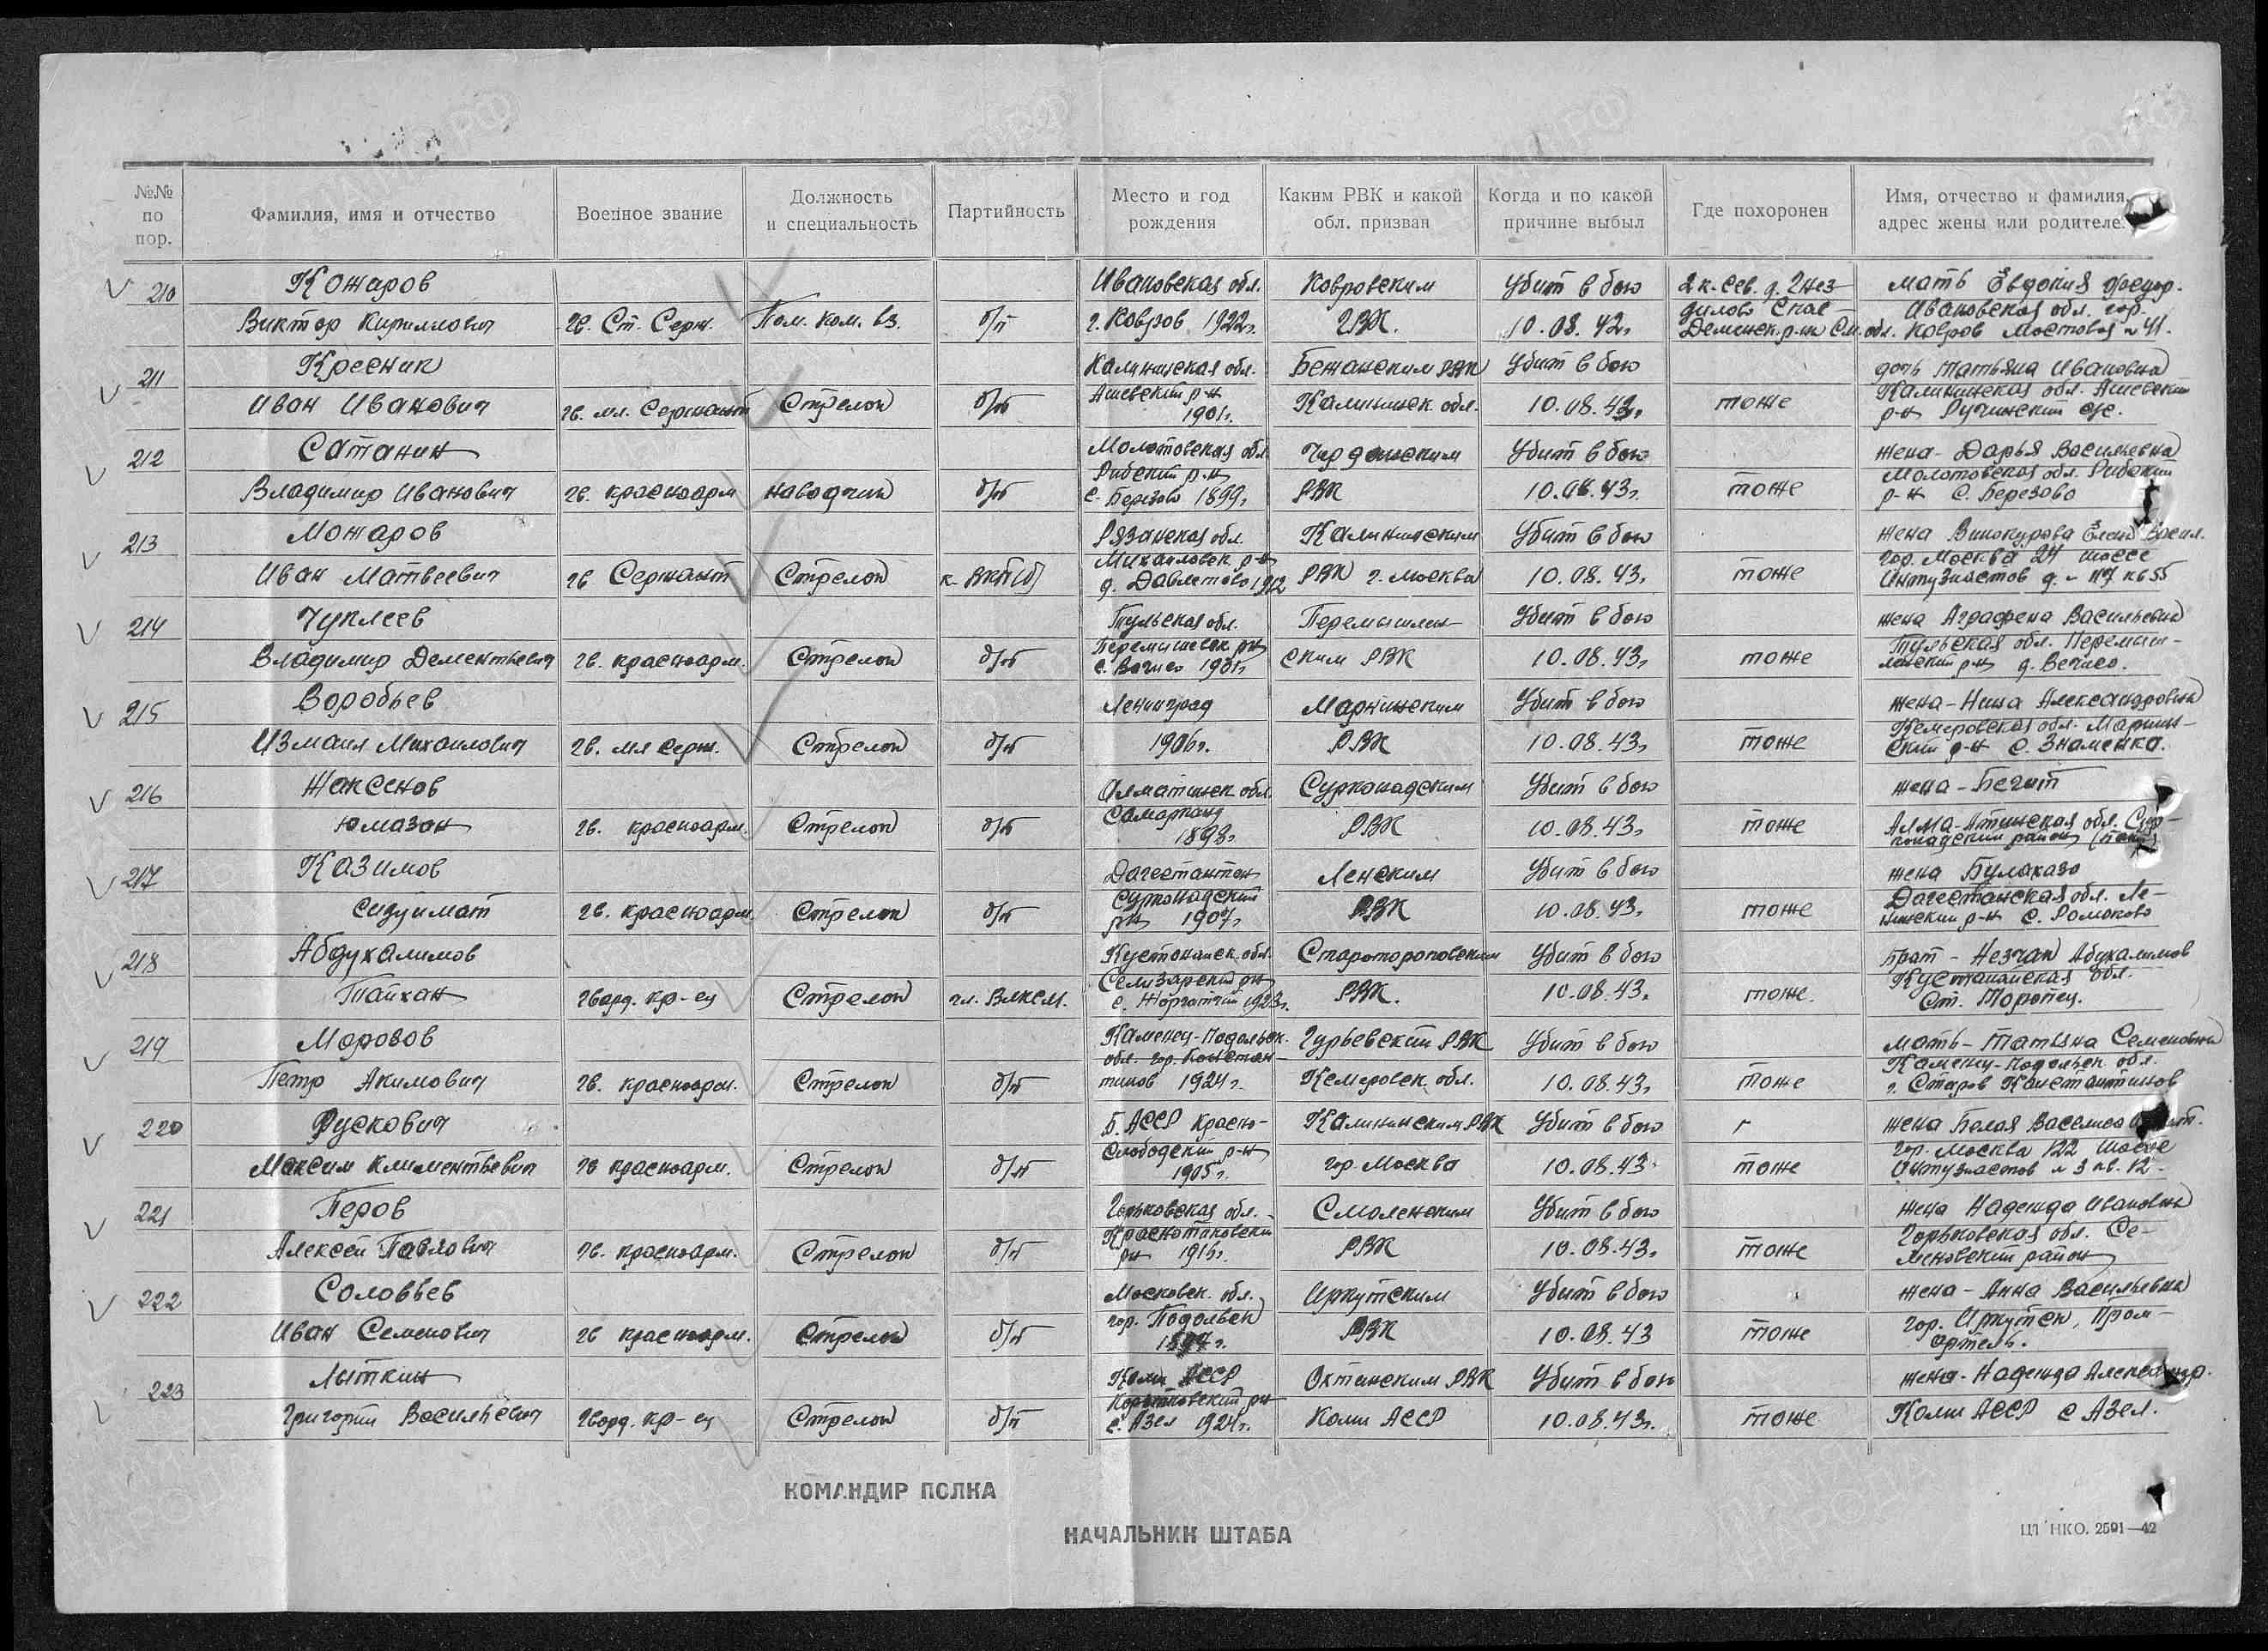 №№ по пор.
Фамилия, имя и отчество
Военное звание
Должность и специальность
Партийность
Место и год рождения
Каким РВК и какой обл. призван
Когда и по какой причине выбыл
Где похоронен
Имя, отчество и фамилия, адрес жены или родителе
210 Кожаров Ивановская обл. Ковровским Убит в бою 2 к. сев. д. Гнез- мать Евдокия Федор.
Виктор Кириллович гв. Ст. Серж. Пом. ком. вз. б/п г. Ковров 1922г. ГВК. 10.08.42г. дилово Спас Ивановская обл. гор.
Деменск. р-на См. обл. Ковров Мостовая 41.
211 Кресник Калининская обл. Бежанским РВК Убит в бою дочь Татьяна Ивановна
Иван Иванович гв. мл. Сержант Стрелок б/п Ашевский р-н 1901г. Калининск обл. 10.08.43г. тоже Калининская обл. Ашевский
р-н с/с.
212 Сатанин Молотовская обл. Чердынским Убит в бою жена - Дарья Васильевна
Владимир Иванович гв. красноарм наводчик б/п р-н с. Березово 1899г. РВК 10.08.43г. тоже Молотовская обл.
р-н с. Березово
213 Можаров Рязанская обл. Калининским Убит в бою жена Винокурова Елена Васил.
Иван Матвеевич гв Сержант Стрелок к-ВКП(б) Михайловск р-н д. Давлетово 1912 РВК г. Москва 10.08.43г. тоже гор. Москва 24 шоссе
Энтузиастов д. 117 кв 55
214 Чуплеев Тульская обл. Перемышлен- Убит в бою жена Аграфена Васильевна
Владимир Дементьевич гв. красноарм. Стрелок б/п Перемышлск р-н 1901г. ским РВК 10.08.43г. тоже Тульская обл. Перемыш-
лвский р-н д.
215 Воробьев Ленинград Мариинским Убит в бою жена - Нина Александровна
Измаил Михаилович гв. мл серж. Стрелок б/п 1906г. РВК 10.08.43г. тоже Кемеровская обл. Мариин-
ский р-н с. Знаменка.
216 Жаксенов Алматинск обл. Убит в бою жена - Бегит
Юмазан гв. красноарм. Стрелок б/п Самарканд 1893г. РВК 10.08.43г. тоже Алма-Атинская обл.
район
217 Казимов Ленским Убит в бою жена Булахазо
Сидуимат гв. красноарм. Стрелок б/п р-н 1907г. РВК 10.08.43г. тоже Дагестанская обл. Ле-
нинский р-н с. Ромоково
218 Абдухалимов Кустонайск обл. Старотороповским Убит в бою Брат - Незчан Абдухалимов
Тайхан гвард. кр-ец Стрелок чл. ВЛКСМ. р-н 1923г. РВК. 10.08.43г. тоже. Кустанайская обл.
Ст. Торопец.
219 Морозов Каменец-Подольск. Гурьевский РВК Убит в бою мать - Татьяна Семеновна
Петр Акимович гв. красноарм. Стрелок б/п обл. гор. Констан-тинов 1924г. Кемеровск обл. 10.08.43г. тоже Каменец-Подольск обл.
г. Старов Константинов
220 Рускович Б. АССР Красно- Калининским РВК Убит в бою жена Белая
Максим Климентьевич гв красноарм. Стрелок б/п Слободский р-н 1905г. гор. Москва 10.08.43. тоже гор. Москва 122 Шоссе
Энтузиастов 3 кв. 12
221 Перов Горьковская обл. Смоленским Убит в бою жена Надежда Ивановна
Алексей Павлович гв. красноарм. Стрелок б/п р-н 1916г. РВК 10.08.43г. тоже Горьковская обл. Се-
меновский район
222 Соловьев Московск. обл. Иркутским Убит в бою жена - Анна Васильевна
Иван Семенович гв красноарм. Стрелок б/п гор. Подольск РВК 10.08.43 тоже гор. Иркутск, Пром-
артель.
223 Лыткин Коми АССР РВК Убит в бою жена - Надежда Александр.
Григорий Васильевич гвард. кр-ец Стрелок б/п р-н с. Азел 1924г. Коми АССР 10.08.43г. тоже Коми АССР с Азел.
КОМАНДИР ПОЛКА
НАЧАЛЬНИК ШТАБА
НКО. 2591—42